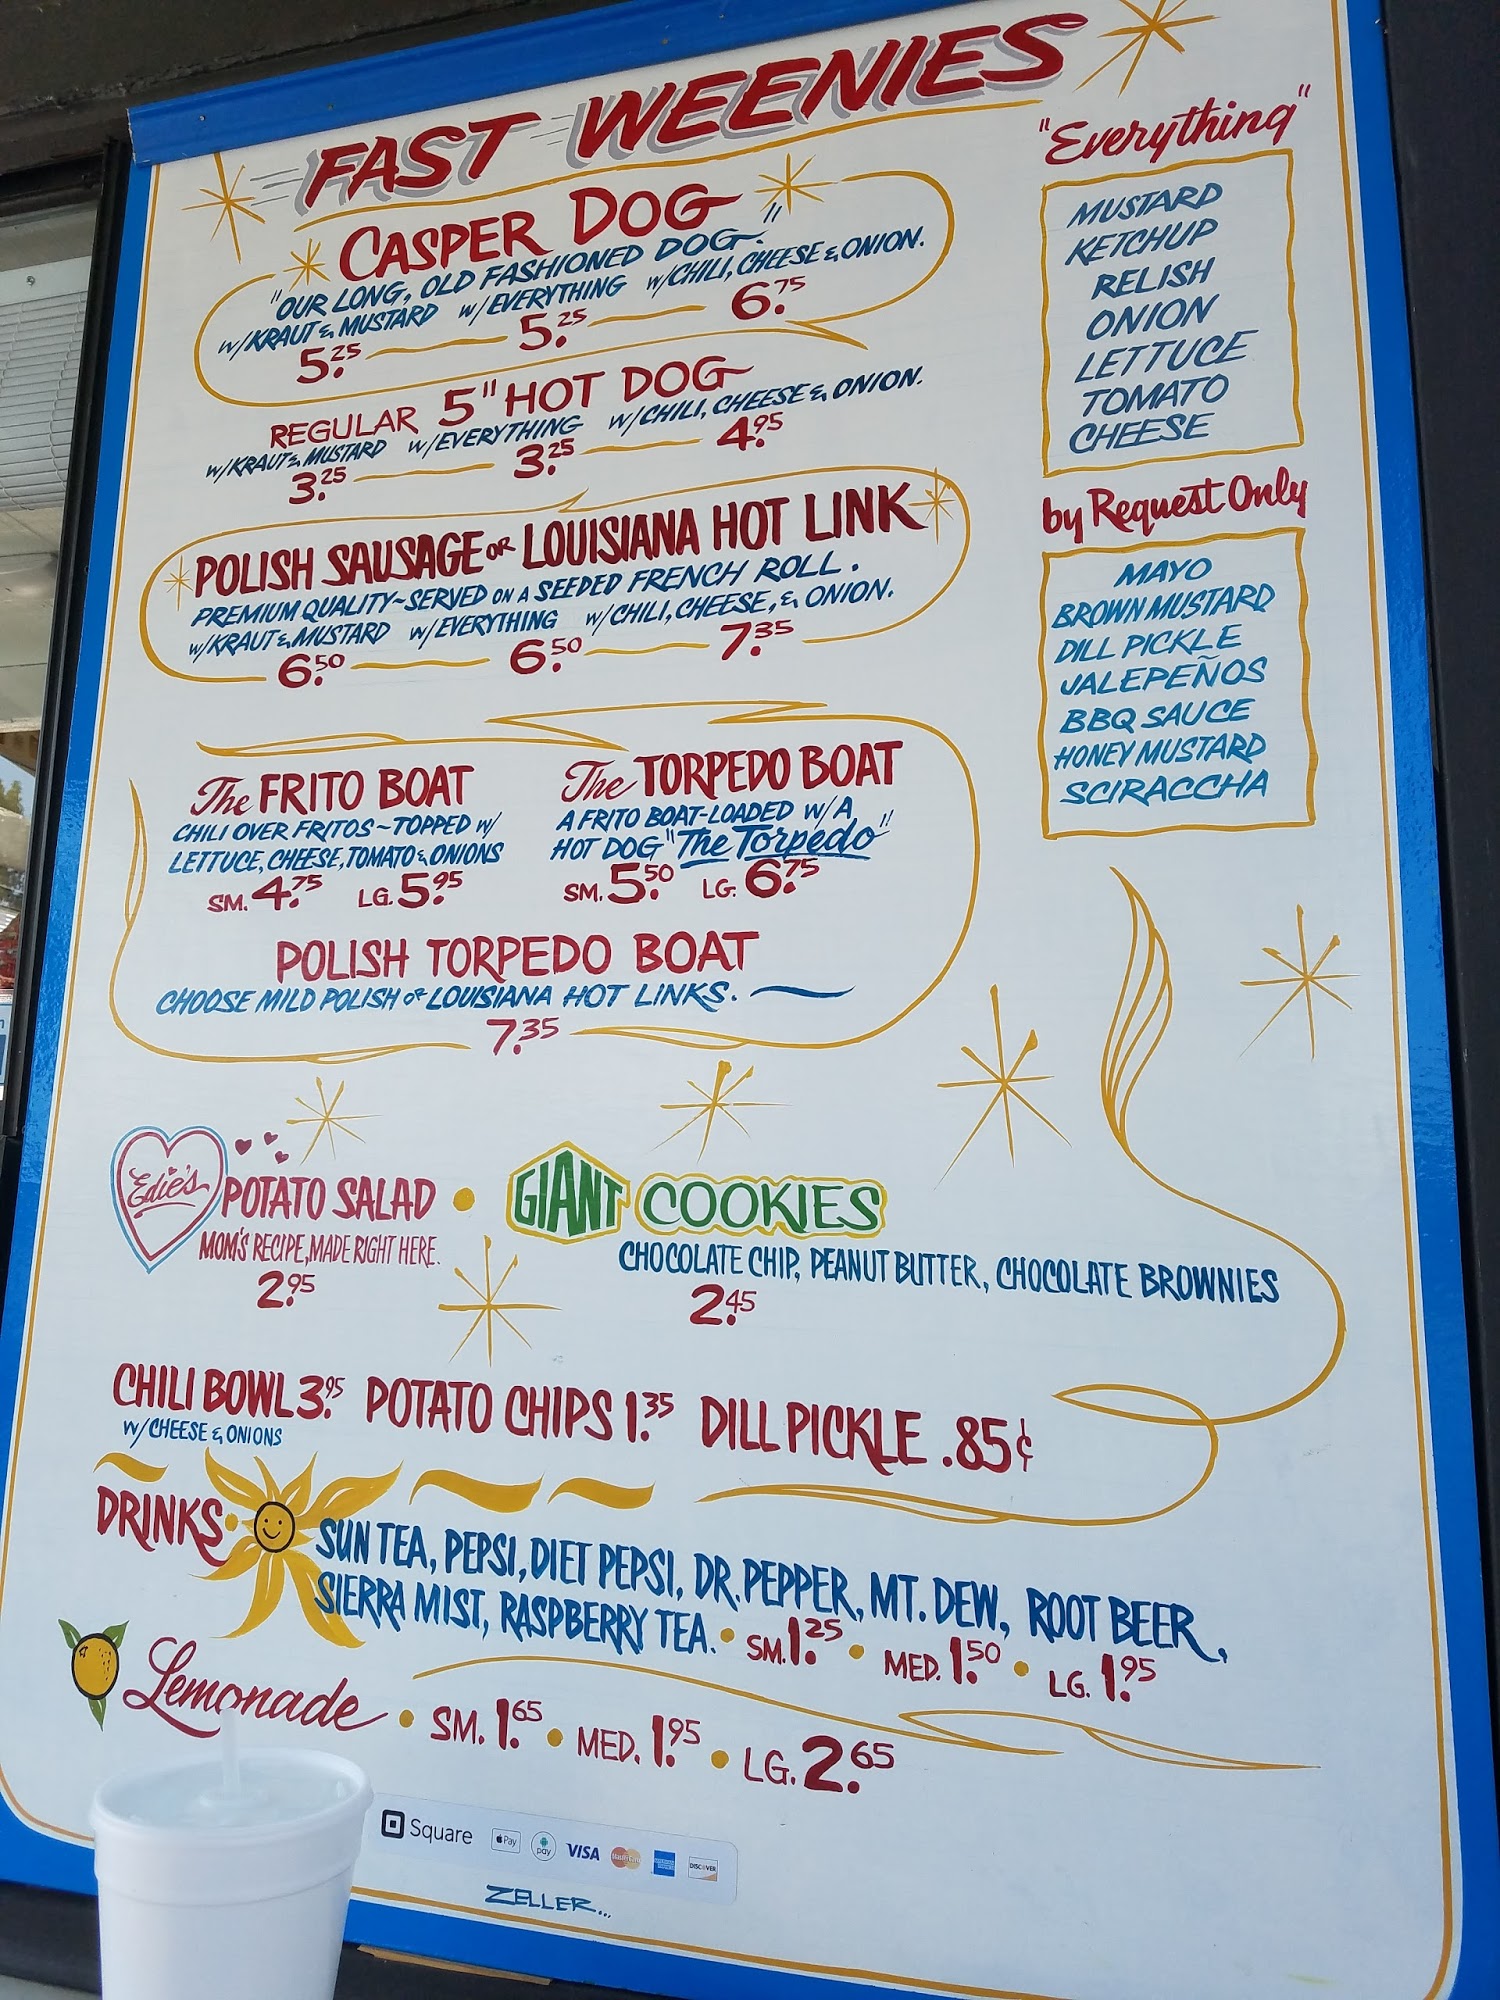 FAST WEENIES
CASPER DOG
"OUR LONG, OLD FASHIONED DOG."
w/KRAUT & MUSTARD w/EVERYTHING w/CHILI, CHEESE & ONION.
5.25 5.25 6.75
REGULAR 5" HOT DOG
w/KRAUT & MUSTARD w/EVERYTHING w/CHILI, CHEESE & ONION.
3.25 3.25 4.95
POLISH SAUSAGE OR LOUISIANA HOT LINK
PREMIUM QUALITY~SERVED ON A SEEDED FRENCH ROLL.
w/KRAUT & MUSTARD w/EVERYTHING w/CHILI, CHEESE, & ONION.
6.50 6.50 7.35
The FRITO BOAT
CHILI OVER FRITOS~TOPPED w/
LETTUCE, CHEESE, TOMATO & ONIONS
SM. 4.75 LG. 5.95
The TORPEDO BOAT
A FRITO BOAT-LOADED W/A
HOT DOG "The Torpedo"
SM. 5.50 LG. 6.75
POLISH TORPEDO BOAT
CHOOSE MILD POLISH OR LOUISIANA HOT LINKS.
7.35
"Everything"
MUSTARD
KETCHUP
RELISH
ONION
LETTUCE
TOMATO
CHEESE
by Request Only
MAYO
BROWN MUSTARD
DILL PICKLE
JALEPEÑOS
BBQ SAUCE
HONEY MUSTARD
SCIRACCHA
Edie's POTATO SALAD
MOM'S RECIPE, MADE RIGHT HERE.
2.95
GIANT COOKIES
CHOCOLATE CHIP, PEANUT BUTTER, CHOCOLATE BROWNIES
2.45
CHILI BOWL 3.95 POTATO CHIPS 1.35 DILL PICKLE .85¢
W/ CHEESE & ONIONS
DRINKS • SUN TEA, PEPSI, DIET PEPSI, DR. PEPPER, MT. DEW, ROOT BEER,
SIERRA MIST, RASPBERRY TEA. • SM. 1.25 • MED. 1.50 • LG. 1.95
Lemonade • SM. 1.65 • MED. 1.95 • LG. 2.65
Square Pay pay VISA MasterCard AMERICAN EXPRESS DISCOVER
ZELLER...